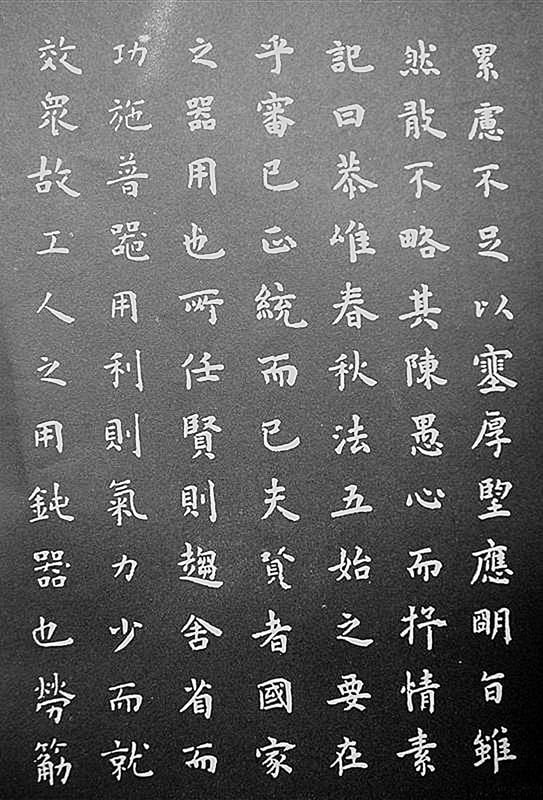 累慮不足以塞厚朢應明旨雖
然敢不略其陳愚心而抒情素
記曰恭惟春秋法五始之要在
乎審已正統而已夫賢者國家
之器用也所任賢則趨舍省而
功施普器用利則氣力少而就
效衆故工人之用鈍器也勞筋